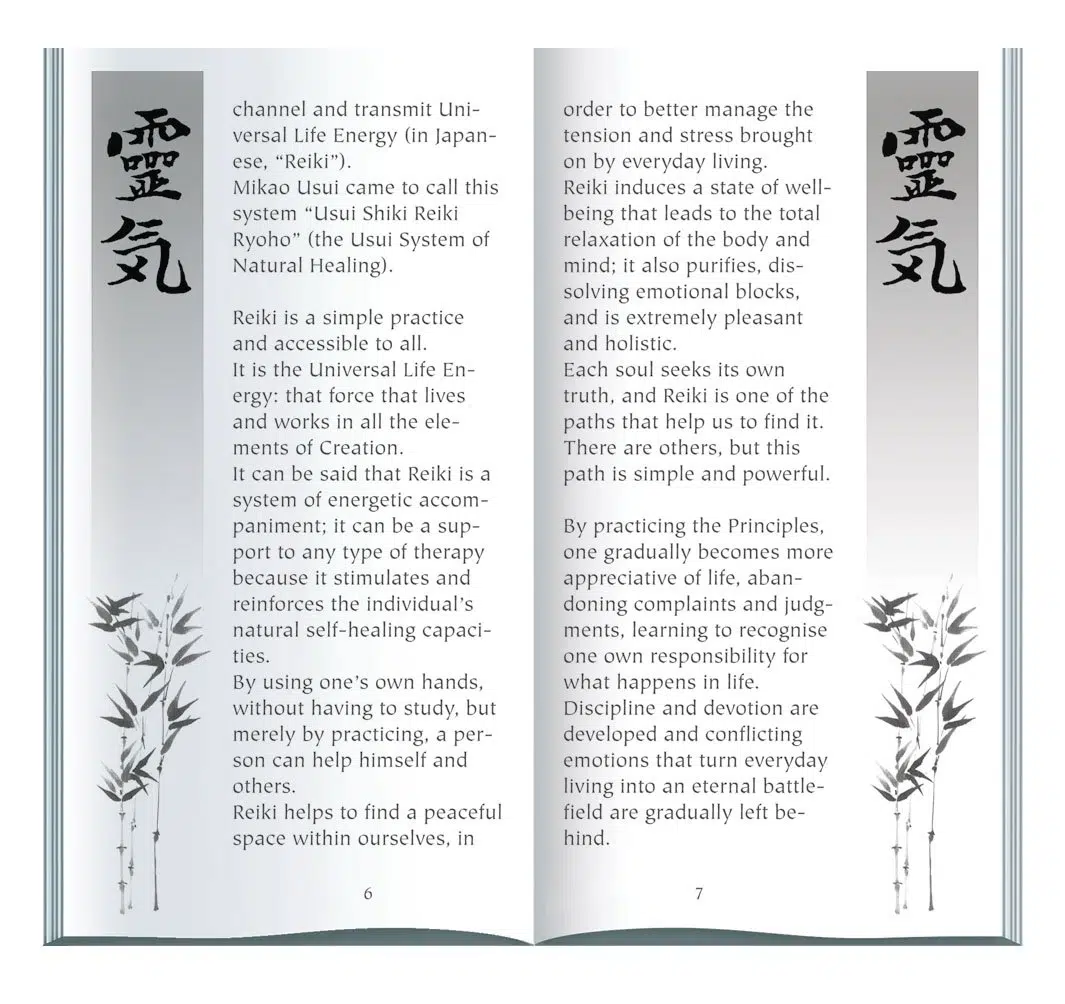 靈
気
channel and transmit Uni-
versal Life Energy (in Japan-
ese, “Reiki”).
Mikao Usui came to call this
system “Usui Shiki Reiki
Ryoho” (the Usui System of
Natural Healing).
Reiki is a simple practice
and accessible to all.
It is the Universal Life En-
ergy: that force that lives
and works in all the ele-
ments of Creation.
It can be said that Reiki is a
system of energetic accom-
paniment; it can be a sup-
port to any type of therapy
because it stimulates and
reinforces the individual’s
natural self-healing capaci-
ties.
By using one’s own hands,
without having to study, but
merely by practicing, a per-
son can help himself and
others.
Reiki helps to find a peaceful
space within ourselves, in
6
order to better manage the
tension and stress brought
on by everyday living.
Reiki induces a state of well-
being that leads to the total
relaxation of the body and
mind; it also purifies, dis-
solving emotional blocks,
and is extremely pleasant
and holistic.
Each soul seeks its own
truth, and Reiki is one of the
paths that help us to find it.
There are others, but this
path is simple and powerful.
By practicing the Principles,
one gradually becomes more
appreciative of life, aban-
doning complaints and judg-
ments, learning to recognise
one own responsibility for
what happens in life.
Discipline and devotion are
developed and conflicting
emotions that turn everyday
living into an eternal battle-
field are gradually left be-
hind.
7
靈
気